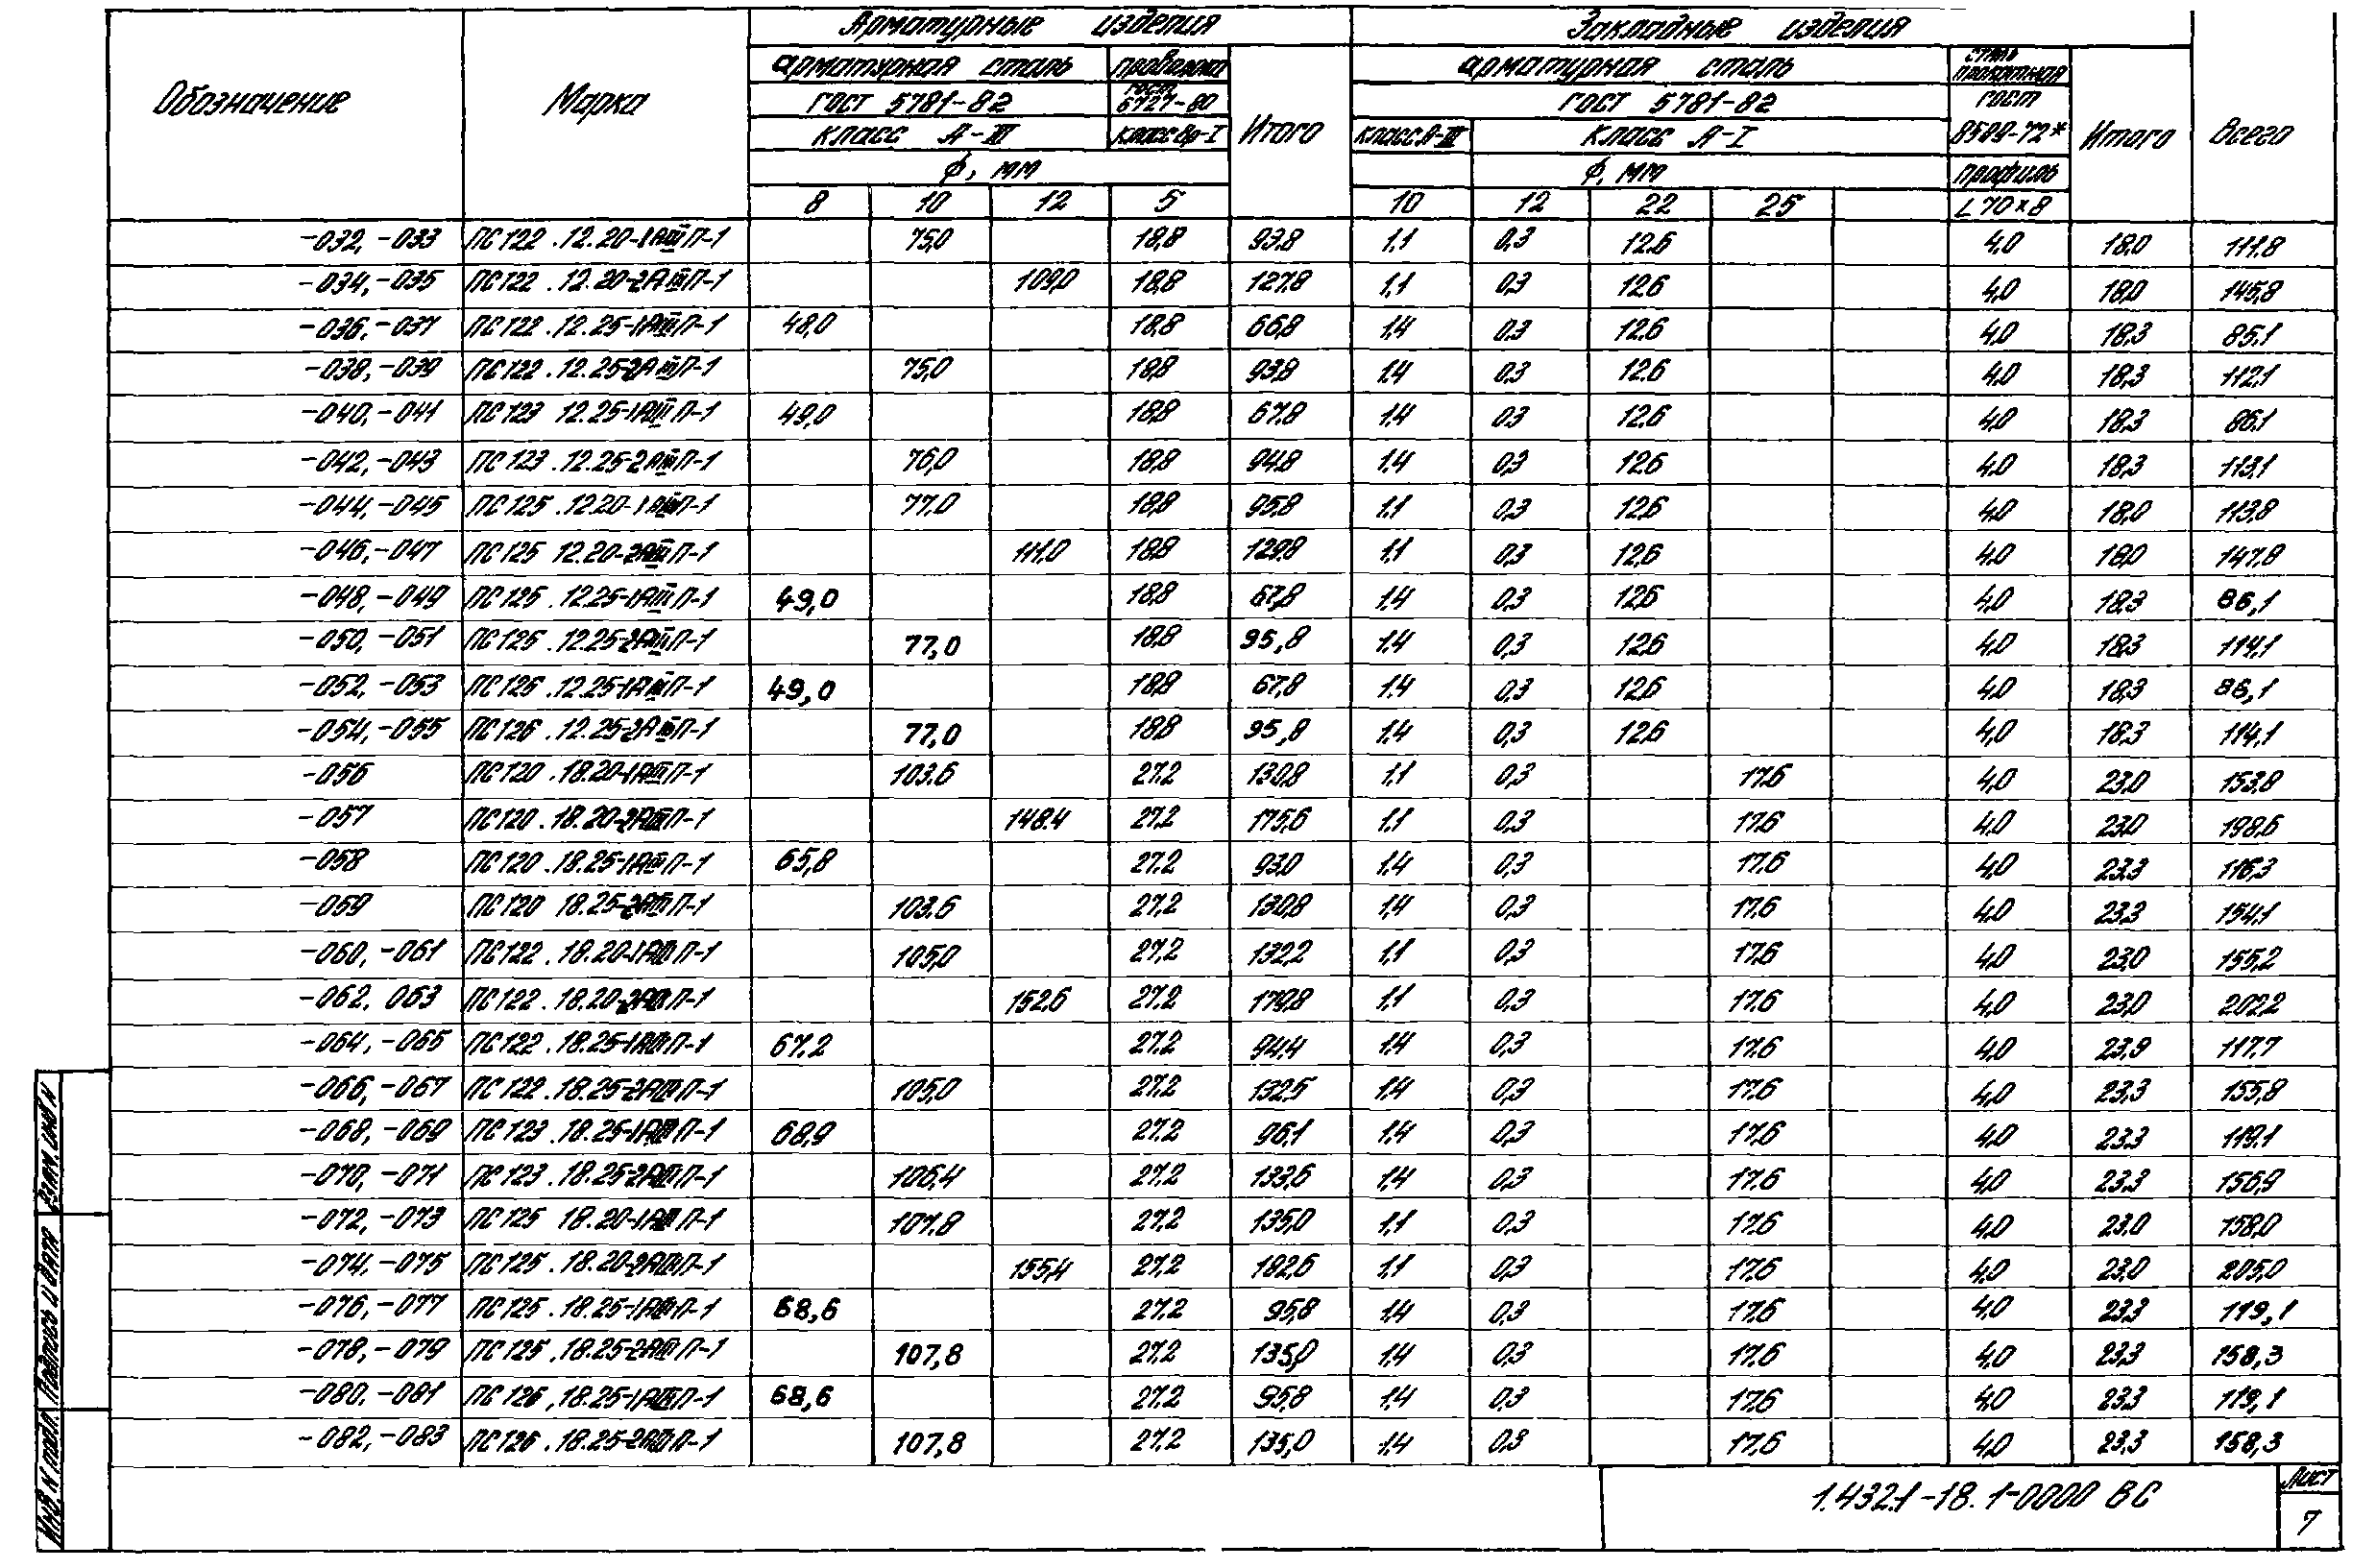 Обозначение Марка Арматурные изделия Закладные изделия Всего
арматурная сталь проволока Итого арматурная сталь сталь прокатная Итого
ГОСТ 5781-82 ГОСТ 6727-80 ГОСТ 5781-82 ГОСТ 8509-72*
класс А-III класс Вр-I класс А-III класс А-I
ф, мм ф, мм профиль
8 10 12 5 10 12 22 25 L 70×8
-032, -033 ПС122.12.20-1АIIIП-1 75,0 18,8 93,8 1,1 0,3 12,6 4,0 18,0 111,8
-034, -035 ПС122.12.20-2АIIIП-1 109,0 18,8 127,8 1,1 0,3 12,6 4,0 18,0 145,8
-036, -037 ПС122.12.25-1АIIIП-1 48,0 18,8 66,8 1,4 0,3 12,6 4,0 18,3 85,1
-038, -039 ПС122.12.25-2АIIIП-1 75,0 18,8 93,8 1,4 0,3 12,6 4,0 18,3 112,1
-040, -041 ПС123 12.25-1АIIIП-1 49,0 18,8 67,8 1,4 0,3 12,6 4,0 18,3 86,1
-042, -043 ПС123.12.25-2АIIIП-1 76,0 18,8 94,8 1,4 0,3 12,6 4,0 18,3 113,1
-044, -045 ПС125.12.20-1АIIIП-1 77,0 18,8 95,8 1,1 0,3 12,6 4,0 18,0 113,8
-046, -047 ПС125 12.20-2АIIIП-1 111,0 18,8 129,8 1,1 0,3 12,6 4,0 18,0 147,8
-048, -049 ПС125.12.25-1АIIIП-1 49,0 18,8 67,8 1,4 0,3 12,6 4,0 18,3 86,1
-050, -051 ПС125.12.25-2АIIIП-1 77,0 18,8 95,8 1,4 0,3 12,6 4,0 18,3 114,1
-052, -053 ПС126.12.25-1АIIIП-1 49,0 18,8 67,8 1,4 0,3 12,6 4,0 18,3 86,1
-054, -055 ПС126.12.25-2АIIIП-1 77,0 18,8 95,8 1,4 0,3 12,6 4,0 18,3 114,1
-056 ПС120.18.20-1АIIIП-1 103,6 27,2 130,8 1,1 0,3 17,6 4,0 23,0 153,8
-057 ПС120.18.20-2АIIIП-1 148,4 27,2 175,6 1,1 0,3 17,6 4,0 23,0 198,6
-058 ПС120.18.25-1АIIIП-1 65,8 27,2 93,0 1,4 0,3 17,6 4,0 23,3 116,3
-059 ПС120 18.25-2АIIIП-1 103,6 27,2 130,8 1,4 0,3 17,6 4,0 23,3 154,1
-060, -061 ПС122.18.20-1АIIIП-1 105,0 27,2 132,2 1,1 0,3 17,6 4,0 23,0 155,2
-062, 063 ПС122.18.20-2АIIIП-1 152,6 27,2 179,8 1,1 0,3 17,6 4,0 23,0 202,2
-064, -065 ПС122.18.25-1АIIIП-1 67,2 27,2 94,4 1,4 0,3 17,6 4,0 23,9 117,7
-066, -067 ПС122.18.25-2АIIIП-1 105,0 27,2 132,5 1,4 0,3 17,6 4,0 23,3 155,8
-068, -069 ПС123.18.25-1АIIIП-1 68,9 27,2 96,1 1,4 0,3 17,6 4,0 23,3 119,1
-070, -071 ПС123.18.25-2АIIIП-1 106,4 27,2 133,6 1,4 0,3 17,6 4,0 23,3 156,9
-072, -073 ПС125 18.20-1АIIIП-1 107,8 27,2 135,0 1,1 0,3 17,6 4,0 23,0 158,0
-074, -075 ПС125.18.20-2АIIIП-1 155,4 27,2 182,6 1,1 0,3 17,6 4,0 23,0 205,0
-076, -077 ПС125.18.25-1АIIIП-1 68,6 27,2 95,8 1,4 0,3 17,6 4,0 23,3 119,1
-078, -079 ПС125.18.25-2АIIIП-1 107,8 27,2 135,0 1,4 0,3 17,6 4,0 23,3 158,3
-080, -081 ПС126.18.25-1АIIIП-1 68,6 27,2 95,8 1,4 0,3 17,6 4,0 23,3 119,1
-082, -083 ПС126.18.25-2АIIIП-1 107,8 27,2 135,0 1,4 0,3 17,6 4,0 23,3 158,3
Взам. инв. N
Подпись и дата
Инв. N подл.
1.432.1-18.1-0000 ВС
Лист
7